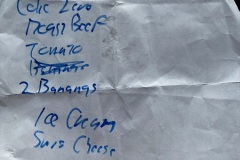 Coke Zero
Mossi Beef
Tomato
2 Bananas
Ice Cream
Swis Cheese